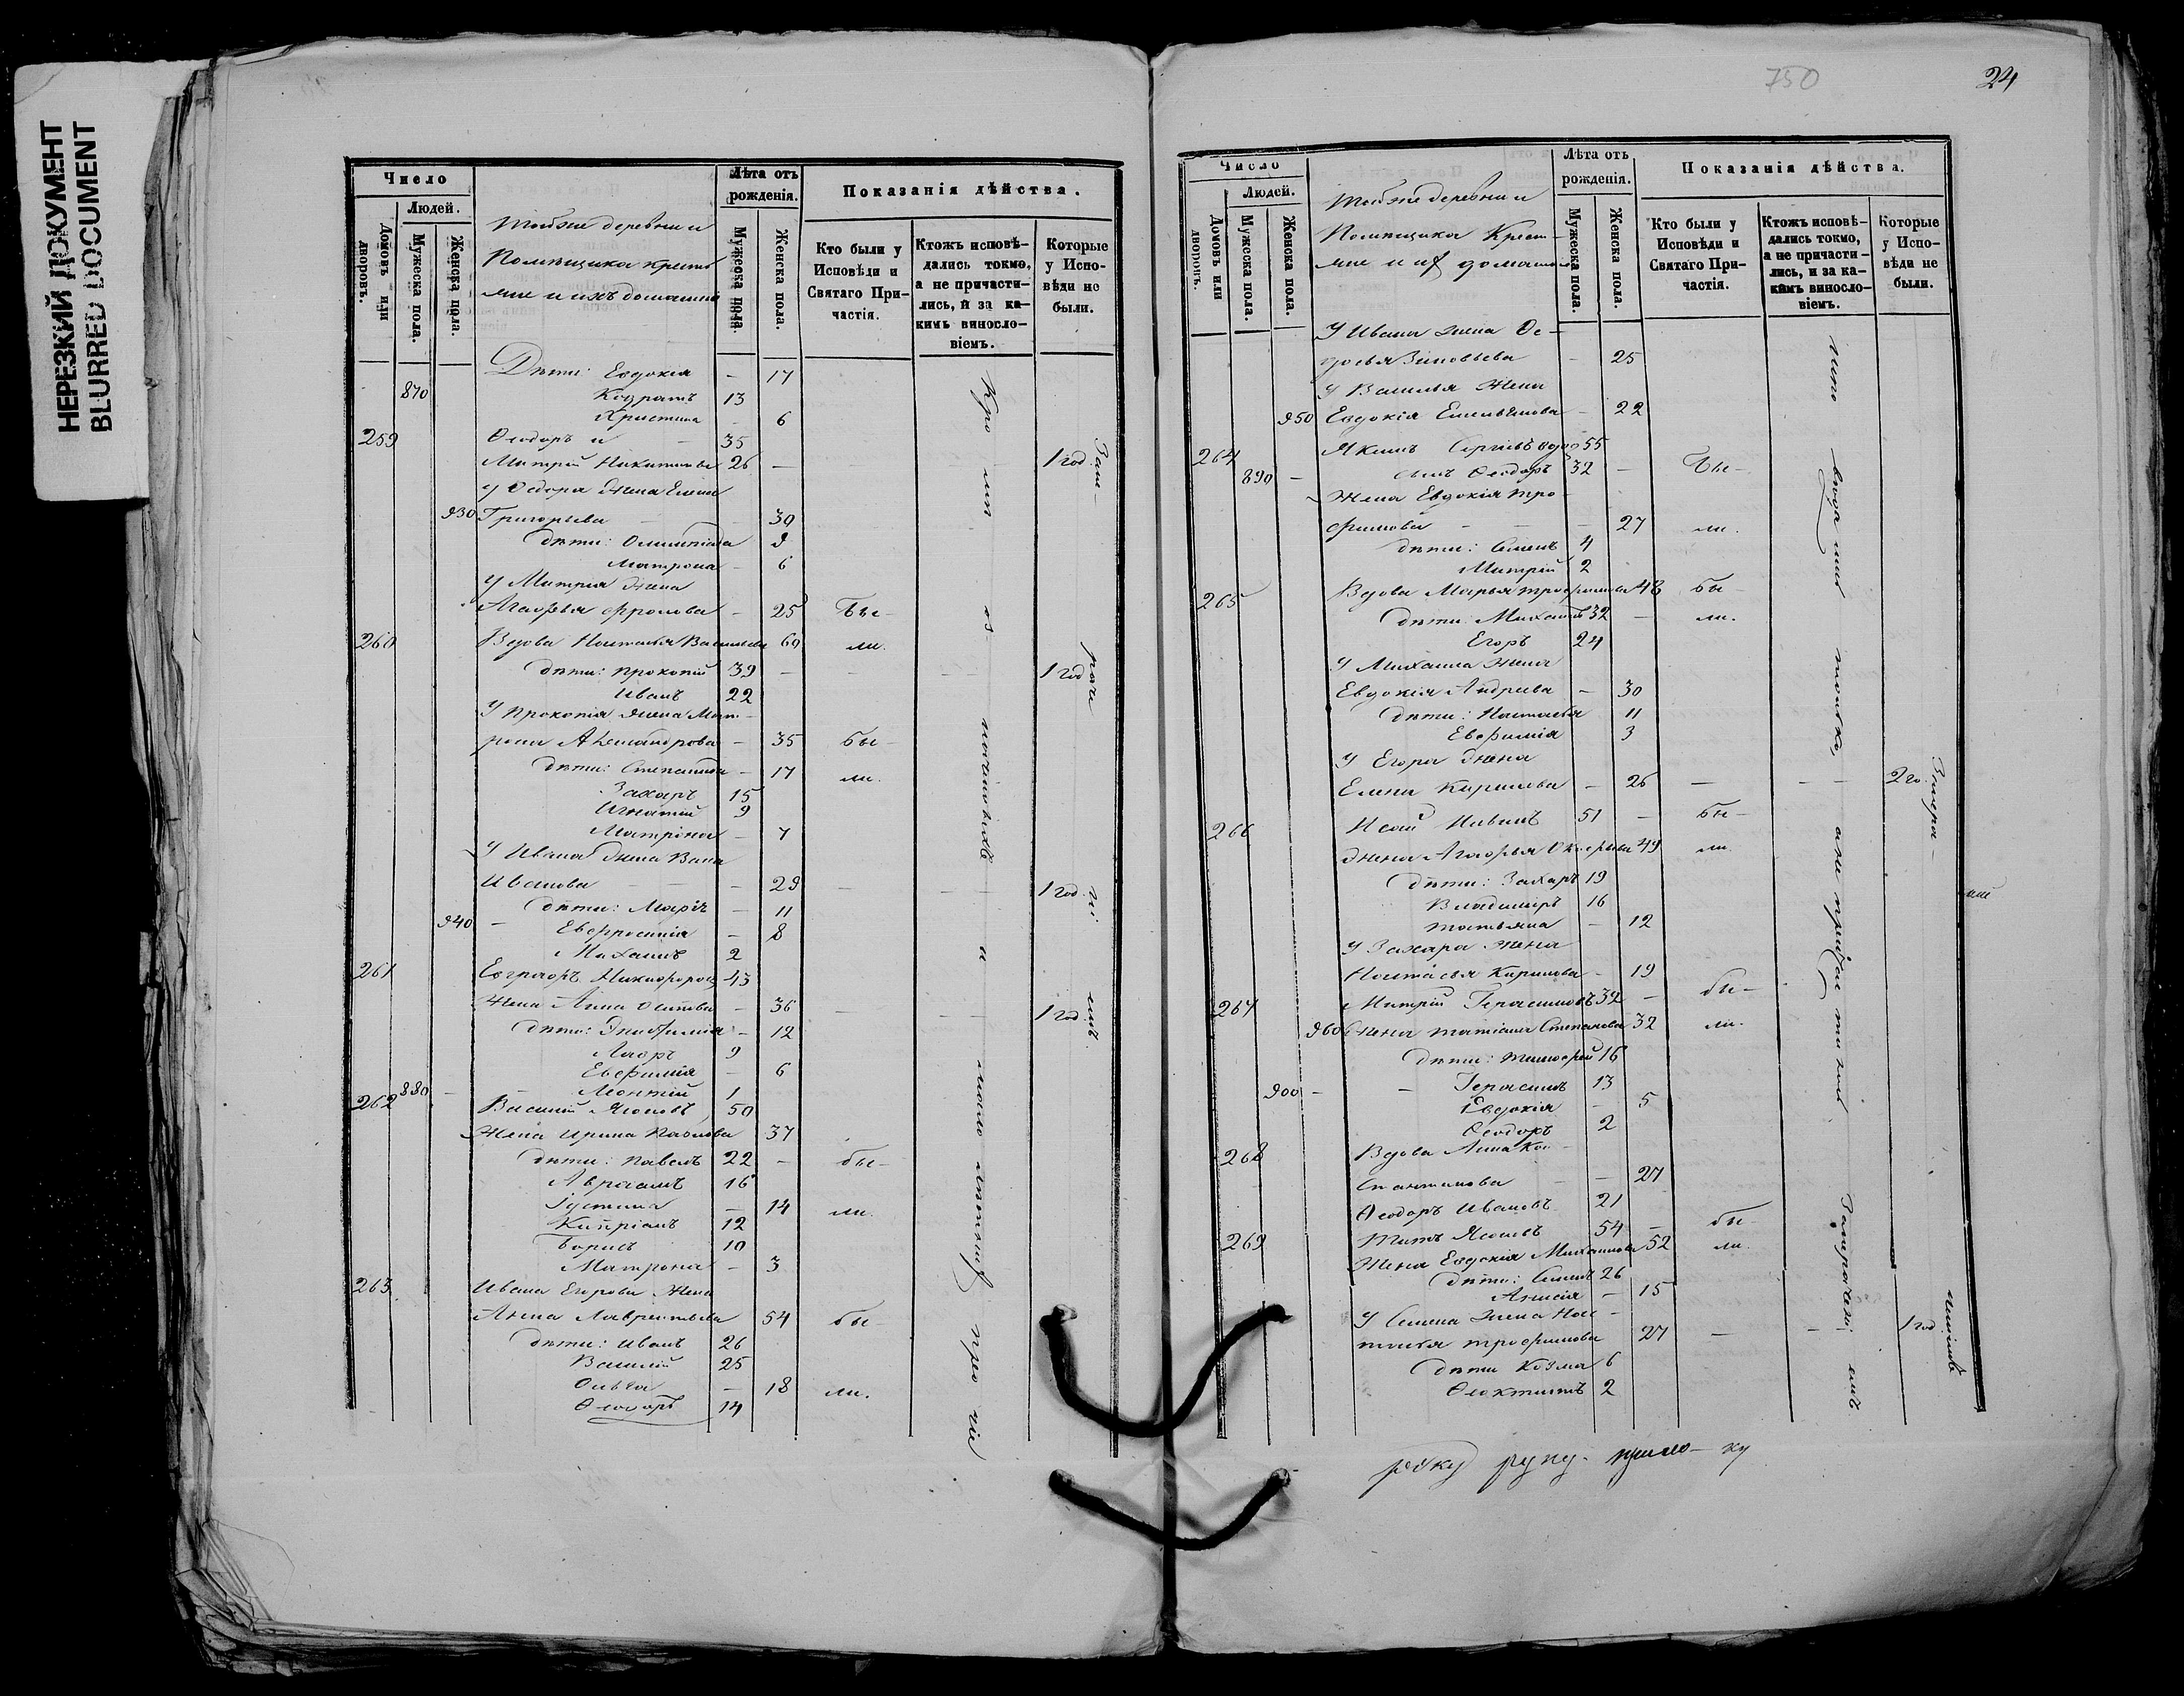 НЕРЕЗКИЙ ДОКУМЕНТ
BLURRED DOCUMENT
Число
Людей.
Домовъ или дворовъ.
Мужеска пола.
Женска пола.
Тойже деревни и
Помѣщика крестья
яне и ихъ домашніе
Лѣта отъ рожденія.
Мужеска пола.
Женска пола.
Показанія дѣйства.
Кто были у Исповѣди и Святаго Причастія.
Ктожъ исповѣдались токмо, а не причастились, и за какимъ винословіемъ.
Которые у Исповѣди не были.
Дѣти: Евдокія - 17
870 Кодратъ 13
Христина - 6
259 Ѳеодоръ и - 35
Митрій Никитины 26 - 1 год
У Ѳедора жена Елена
930 Григорьева - 30
дѣти: Олимпіада 9
Матрона - 6
У Митрія жена
Агаѳья Фролова - 25 бы-
260 Вдова Настасья Васильева 60 ли.
дѣти: Прокопій 39 - - - 1 год
Иванъ 22
У Прокопія жена Мат-
рона Александрова - 35 бы-
дѣти: Степанида - 17 ли.
Захаръ 15
Игнатій 9
Матрона - 7
У Ивана жена Васа
Иванова - 29 - - 1 год
дѣти: Марія - 11
940 - Евфросинія - 8
Михаилъ 2
261 Евграфъ Никифоровъ 43
Жена Анна Осипова - 36 - - 1 год
дѣти: - 12
Лавръ 9
Евфимія - 6
880 - Леонтій 1
262 Василій Яковъ 50
Жена Ирина Павлова 37
дѣти: Павелъ 22 - бы-
Авраамъ 16
Іустина - 14 ли.
Кипріанъ 12
Борисъ 10
Матрона - 3
263 Ивана Егорова жена
Анна Лаврентьева 54 бы-
дѣти: Иванъ 26
Василій 25
Ольга - 18 ли.
Ѳеодоръ 14
750
24
Число
Людей.
Домовъ или дворовъ.
Мужеска пола.
Женска пола.
Тойже деревни и
Помѣщика Крест-
яне и их домашн
Лѣта отъ рожденія.
Мужеска пола.
Женска пола.
Показанія дѣйства.
Кто были у Исповѣди и Святаго Причастія.
Ктожъ исповѣдались токмо, а не причастились, и за какимъ винословіемъ.
Которые у Исповѣди не были.
У Ивана жена Ѳе-
досья Зиновьева - 25
У Василья жена
950 Евдокія Емельянова - 22
264 Якимъ Сергѣевъ вдов 55
890 - сынъ Ѳеодоръ 32 - бы-
Жена Евдокія Тро-
фимова - - - 27 ли.
дѣти: Семенъ 4
Митрій 2
265 Вдова Марья Трофимова 48 бы-
дѣти: Михаилъ 32 - ли.
Егоръ 24
У Михаила жена
Евдокія Андреева - 30
дѣти: Настасья 11
Евфимія 3
У Егора жена
Елена Кирилова - 26 - - 2 го.
266 Исай 51 - бы-
жена Агаѳья 49 ли
дѣти: Захаръ 19
Владимиръ 16
Татьяна - 12
У Захара жена
Настасья Кирилова - 19
267 Митрій Герасимовъ 32 - бы-
960 Жена Татіана Степанова 32 ли.
дѣти: Тимофей 16
900 - - Герасимъ 13
Евдокія - 5
Ѳеодоръ 2
268 Вдова Анна Кон-
стантинова - - 27
Ѳеодоръ Ивановъ 21
269 Титъ Яковлевъ 54 - бы-
Жена Евдокія Михаилова 52 ли.
дѣти: Семенъ 26
Анисія - 15
У Семена жена Нас-
тасья Трофимова 27 - - 1 год
дѣти Козма 6
Ѳеоктистъ 2
руку прило- жу